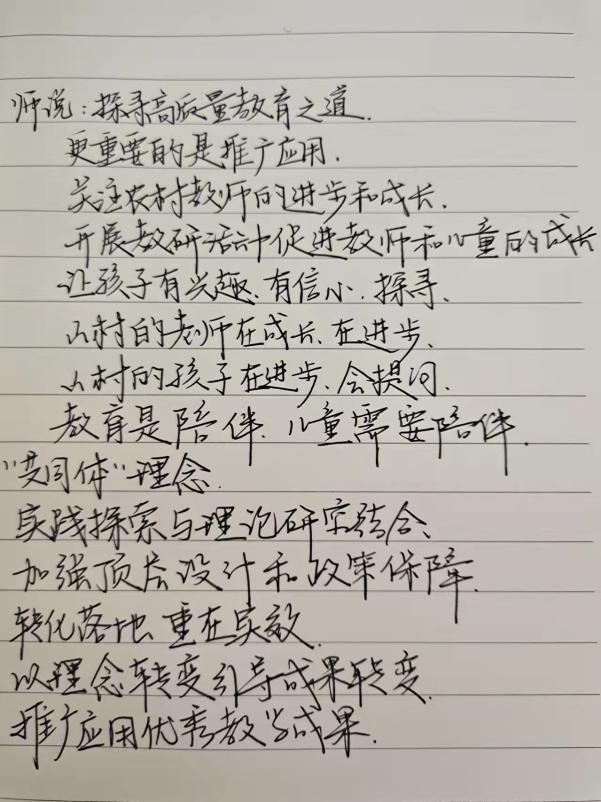 师说:探寻高质量教育之道.
更重要的是推广应用.
关注农村教师的进步和成长.
开展教研活动中促进教师和儿童的成长
让孩子有兴趣.有信心.探寻.
山村的老师在成长.在进步.
山村的孩子在进步.会提问.
教育是陪伴.儿童需要陪伴.
"共同体"理念.
实践探索与理论研究结合、
加强顶层设计和政策保障.
转化落地 重在实效.
以理念转变引导成果转变.
推广应用优秀教学成果.